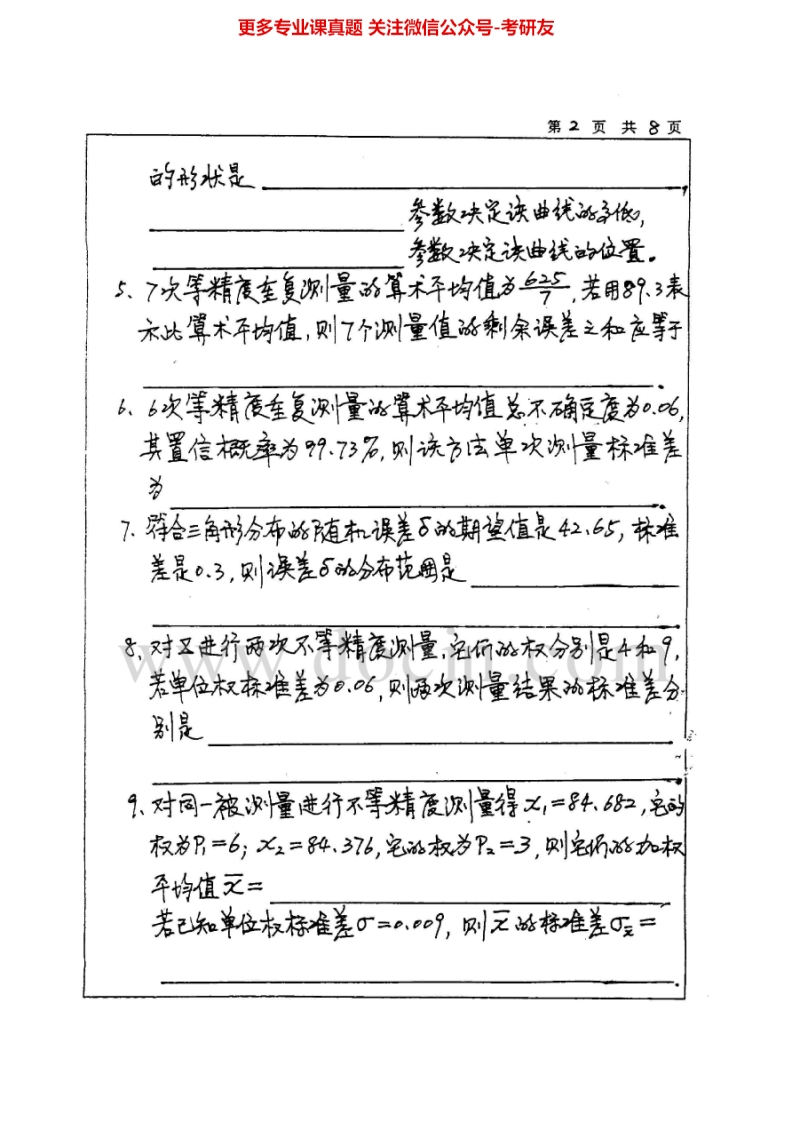 更多专业课真题 关注微信公众号-考研友
第 2 页 共 8 页
的形状是
参数决定该曲线的高低,
参数决定该曲线的位置。
5、7次等精度重复测量的算术平均值为625/7,若用89.3表
示此算术平均值,则7个测量值的剩余误差之和应等于
。
6、6次等精度重复测量的算术平均值总不确定度为0.06,
其置信概率为99.73%,则该方法单次测量标准差
为 。
7、符合三角形分布的随机误差δ的期望值是42.65,标准
差是0.3,则误差δ的分布范围是
8、对X进行两次不等精度测量,它们的权分别是4和9,
若单位权标准差为0.06,则两次测量结果的标准差分
别是
www.docin.com
9、对同一被测量进行不等精度测量得x₁=84.682,它的
权为P₁=6;x₂=84.376,它的权为P₂=3,则它们的加权
平均值x̄=
若已知单位权标准差σ=0.009,则x̄的标准差σx̄=
。